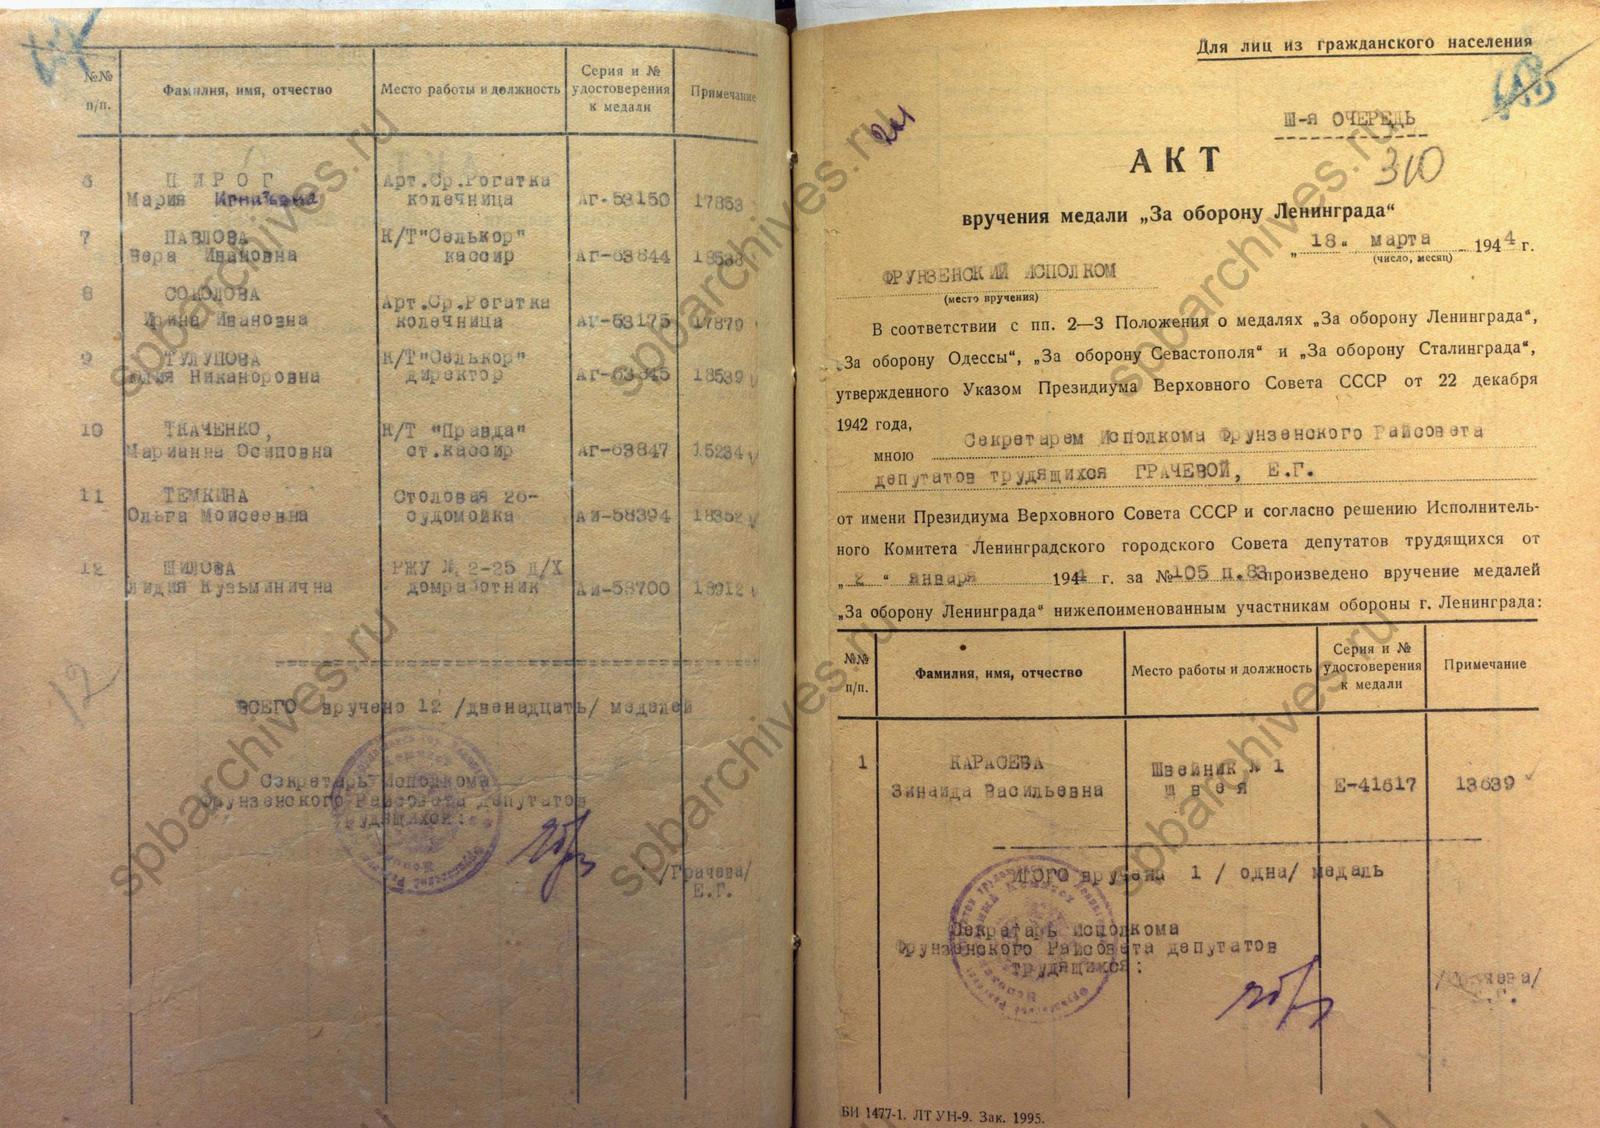 №№ п/п.
Фамилия, имя, отчество
Место работы и должность
Серия и № удостоверения к медали
Примечание
6 ПИРОГ Арт.Ср.Рогатка
Мария Игнатьевна колечница АГ-53150 17853
7 ПАВЛОВА К/Т"Селькор"
Вера Ивановна кассир АГ-63844 18538
8 СОКОЛОВА Арт.Ср.Рогатка
Ирина Ивановна колечница АГ-53175 17879
9 ТУЛУПОВА К/Т"Селькор"
Никаноровна директор АГ-63845 18539
10 ТКАЧЕНКО, К/Т "Правда"
Марианна Осиповна ст.кассир АГ-63847 15234
11 ТЕМКИНА Столовая 26-
Ольга Моисеевна судомойка АИ-58394 18352
12 ШИЛОВА РЖУ № 2-25 д/х
Лидия Кузьминична домработник АИ-58700 18912
12
ВСЕГО вручено 12 /двенадцать/ медалей
Секретарь Исполкома
Фрунзенского Райсовета депутатов
трудящихся:
/Грачева/
Е.Г.
Для лиц из гражданского населения
Ш-я ОЧЕРЕДЬ
АКТ
310
вручения медали „За оборону Ленинграда“
„18" марта 1944 г.
(число, месяц)
ФРУНЗЕНСКИЙ ИСПОЛКОМ
(место вручения)
В соответствии с пп. 2—3 Положения о медалях „За оборону Ленинграда“,
„За оборону Одессы“, „За оборону Севастополя“ и „За оборону Сталинграда“,
утвержденного Указом Президиума Верховного Совета СССР от 22 декабря
1942 года,
мною Секретарем Исполкома Фрунзенского Райсовета
депутатов трудящихся ГРАЧЕВОЙ, Е.Г.
от имени Президиума Верховного Совета СССР и согласно решению Исполнитель-
ного Комитета Ленинградского городского Совета депутатов трудящихся от
„2" января 1944 г. за №105 п.83 произведено вручение медалей
„За оборону Ленинграда“ нижепоименованным участникам обороны г. Ленинграда:
№№ п/п.
Фамилия, имя, отчество
Место работы и должность
Серия и № удостоверения к медали
Примечание
1 КАРАСЕВА Швейник № 1
Зинаида Васильевна швея Е-41617 13639
ИТОГО вручена 1 / одна/ медаль
Секретарь Исполкома
Фрунзенского Райсовета депутатов
трудящихся:
/Грачева/
Е.Г.
БИ 1477-1. ЛТ УН-9. Зак. 1995.
spbarchives.ru